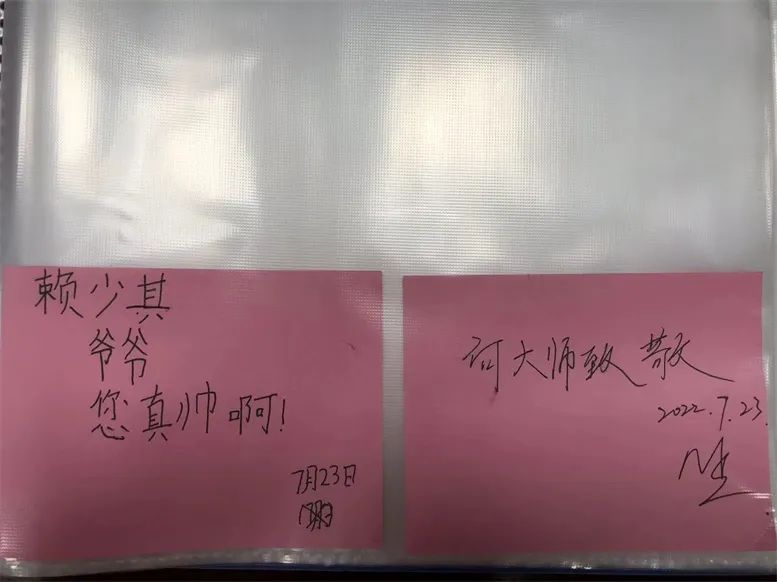 赖少其
爷爷
您真帅啊!
7月23日
向大师致敬
2022.7.23.